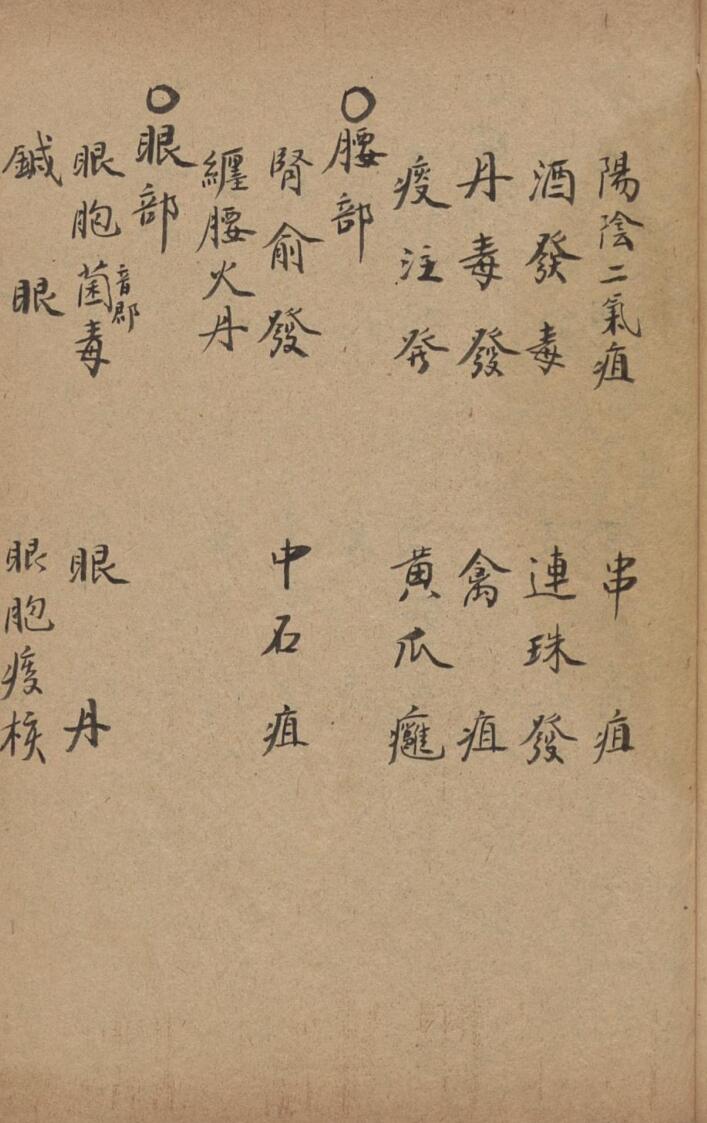 陽陰二氣疽　串疽
酒發毒　連珠發
丹毒發　禽疽
痰注發　黃瓜癰
○腰部
腎俞發　中石疽
纏腰火丹
○眼部
眼胞菌毒　眼丹
音郡
鍼眼　眼胞痰核